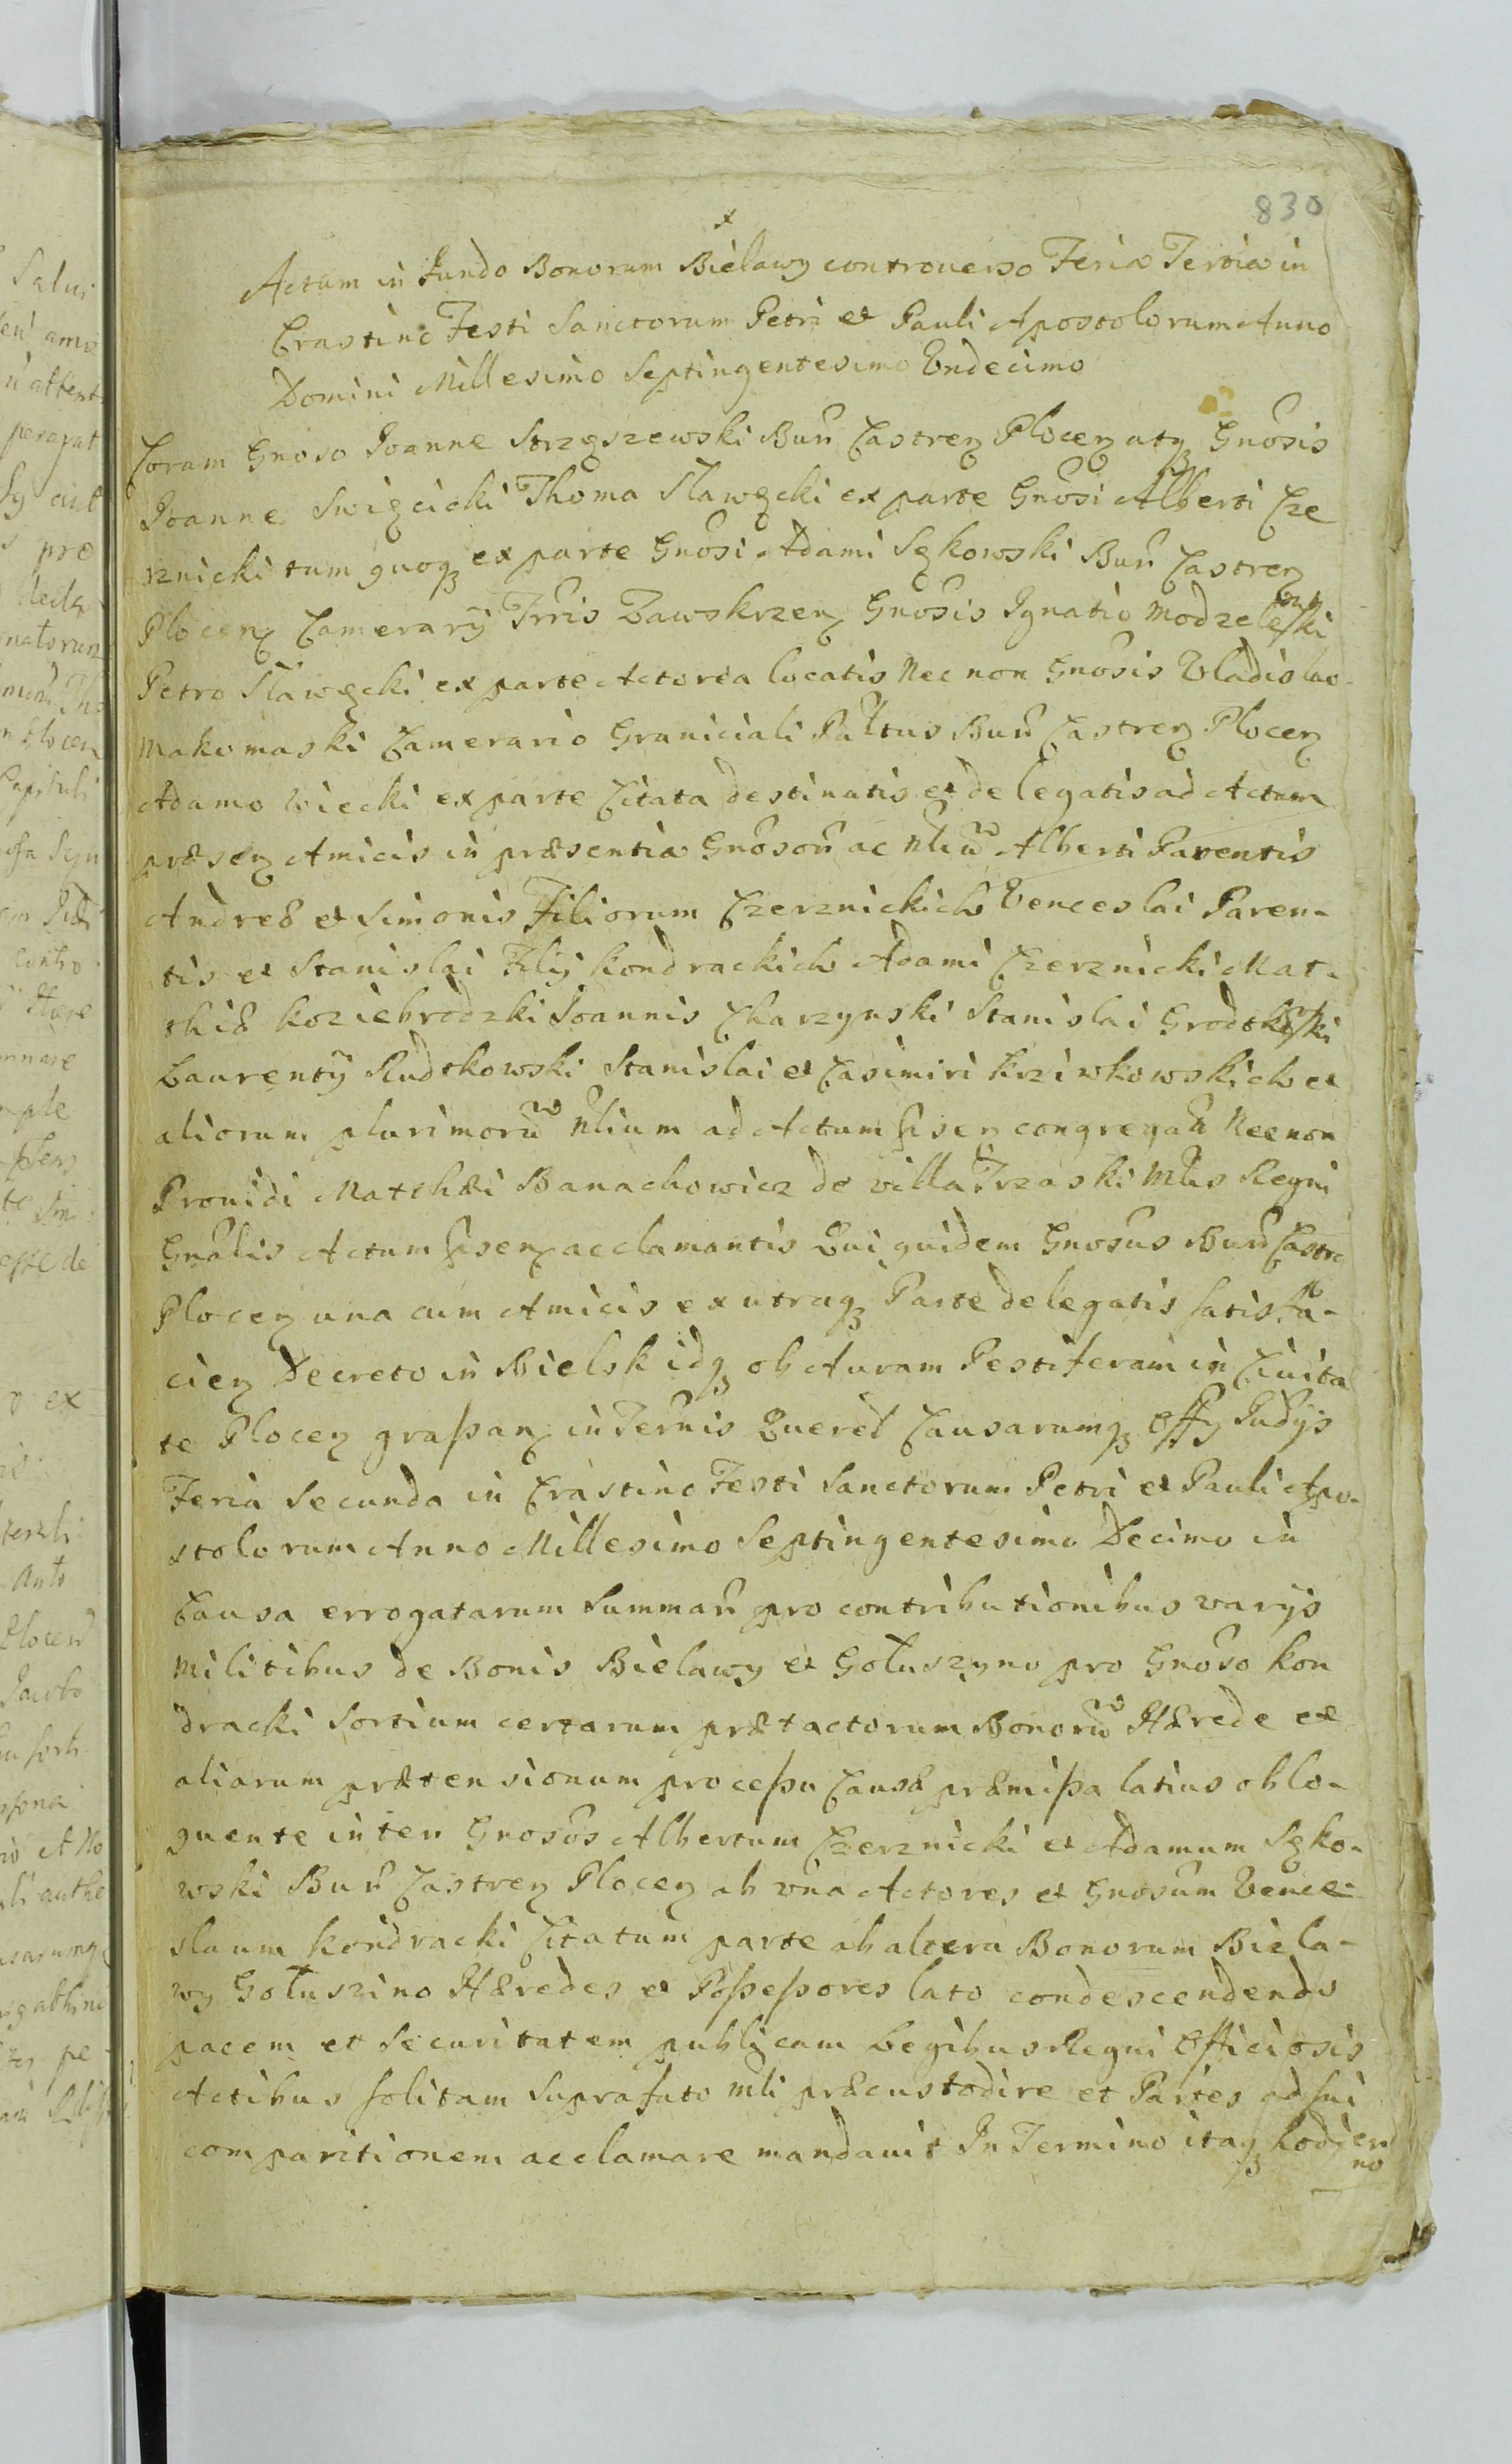 830
Actum in Fundo Bonorum Bielawy controuerso Feria Tertia in
Crastino Festi Sanctorum Petri et Pauli Apostolorum Anno
Domini Millesimo Septingentesimo Undecimo
Coram Gnoso Joanne Strzęszewski Burg Castren Plocen atq Gnosis
Joanne Swięcicki Thoma Sławęcki ex parte Gnosi Alberti Cze
rznicki tum quoq ex parte Gnosi Adami Sękowski Burg Castren
Plocen Camerarij Trris Zawskrzen Gnosis Ignatio Modzeleski
Petro Sławęcki ex parte Actorea locatis Nec non Gnosis Vladislao
Makomaski Camerario Graniciali Pułtus Burg Castren Plocen
Adamo Wiecki ex parte Citata destinatis et delegatis ad Actum
præsen Amicis in præsentia Gnosorū ac Nliū Alberti Parentis
Andreæ et Simonis Filiorum Czerznickich Venceslai Paren-
tis et Stanislai Filij Kondrackich Adami Czerznicki Mat-
thiæ Koziebrodzki Joannis Charzynski Stanislai
Laurentij Rudtkowski Stanislai et Casimiri Krziwkowskich et
aliorum plurimorū Nlium ad Actum psen congregatū Necnon
Prouidi Matthæi Banachowicz de villa Trzaski Mtlis Regni
Gnalis Actum psen acclamantis Qui quidem Gnosus Burg Castre
Plocen una cum Amicis ex utraq Parte delegatis satisfa-
cien Decreto in Bielsk idq ob Auram Pestiferam in Ciuita
te Plocen graßan in Termis Querel Causarumq Offy Judijs
Feria Secunda in Crastino Festi Sanctorum Petri et Pauli Apo-
stolorum Anno Millesimo Septingentesimo Decimo in
Causa errogatarum Summarū pro contributionibus varijs
Militibus de Bonis Bielawy et Gołuszyno pro Gnoso Kon
dracki Sortium certarum prætactorum Bonorū Hærede et
aliarum prætensionum proceßu Causæ præmißa latius oblo-
quente inter Gnosos Albertum Czerznicki et Adamum Sęko-
wski Burg Castren Plocen ab vna Actores et Gnosum Vence-
slaum Kondracki Citatum parte ab altera Bonorum Biela-
wy Gołuszino Hæredes et Poßeßores lato condescendendo
pacem et Securitatem publicam Legibus Regni Officiosis
Actibus solitam Suprafato Mli præcustodire et Partes ad sui
comparitionem acclamare mandauit In Termino itaq hodier
no